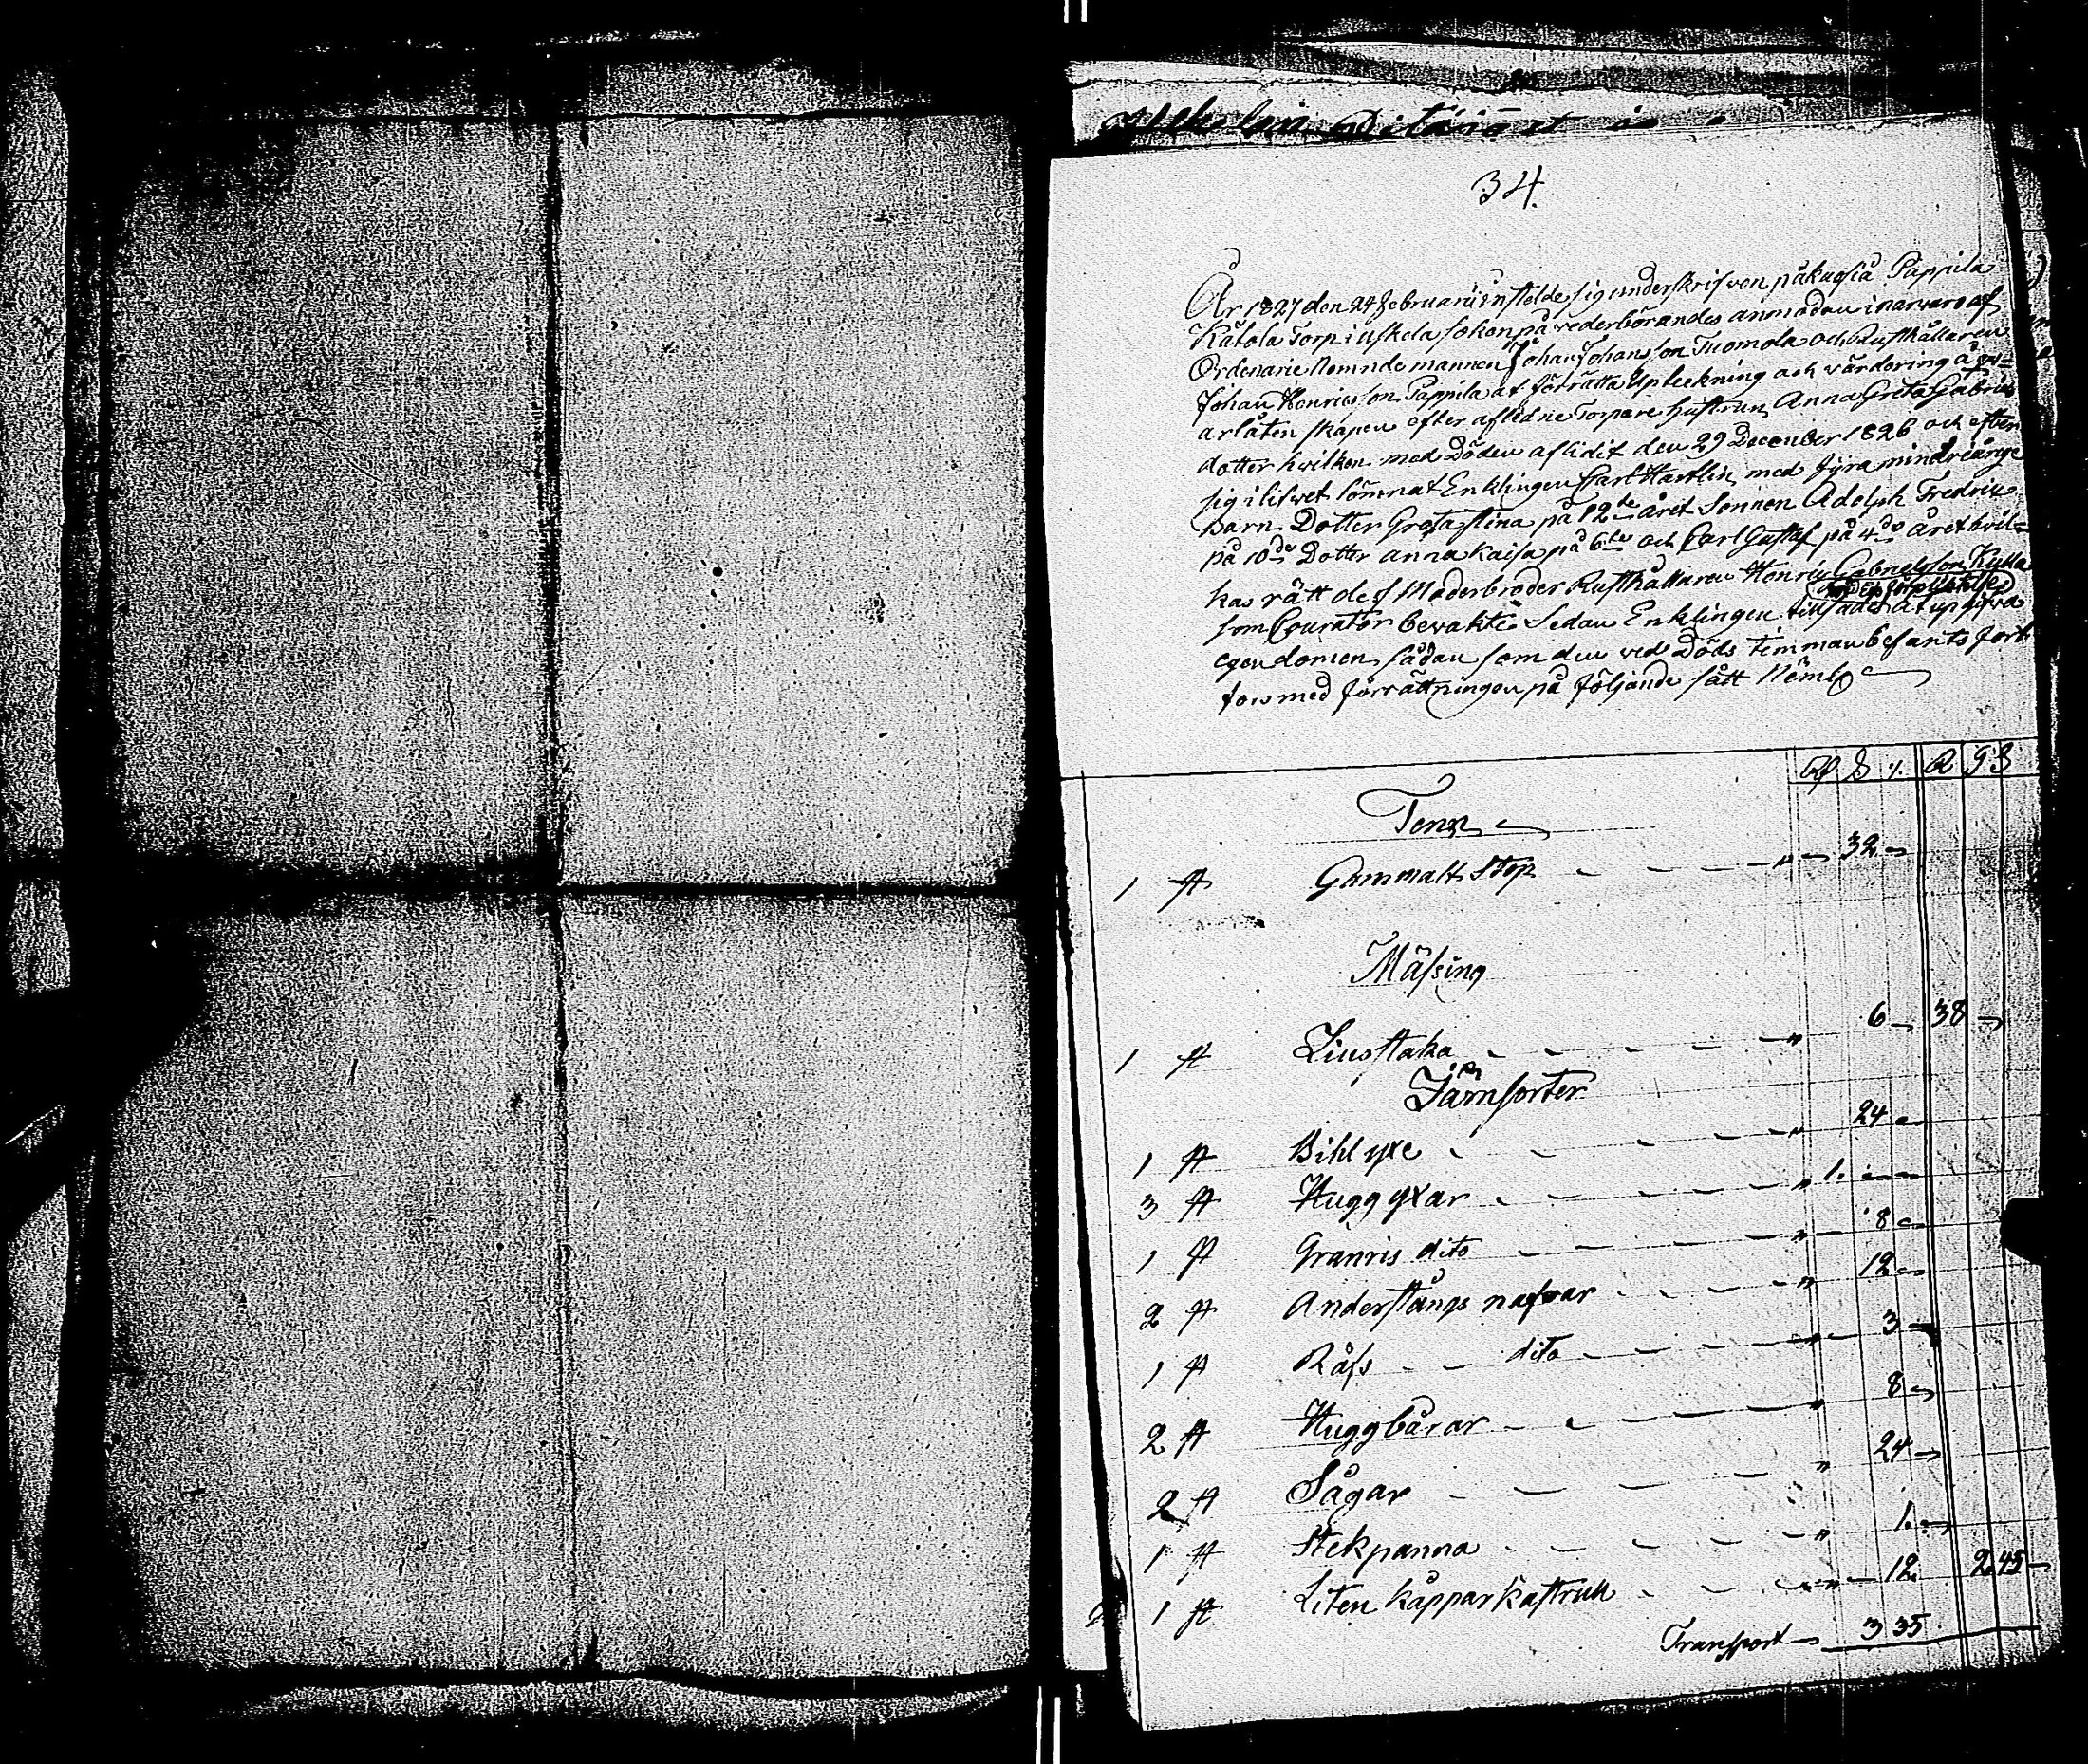 34.
År 1827 den 24 Februarii instelde sig underskrifven på kuosia Pappila
Kåtola Torp i Uskela sokon på vederbörandes anmodan i narvaro af
Ordenarie Nemndemannen Johan Johansson Tuomola och Rusthållaren
Johan Henricsson Pappila at förrätta Upteckning och värdering å qv=
arlåtenskapen efter aflidne Torpare hustrun Anna Greta Gabriels
dotter hvilken med Döden aflidit den 29 December 1826 och efter
sig i lifwet lömnat Enklingen Carl Hartlin med fyra mindreårige
Barn Dotter Greta Stina på 12te året Sonnen Adolph Fredric
på 10de Dotter Anna Kaisa på 6te och Carl Gustaf på 4de året hvil=
kas rätt dess Moderbroder Rusthållaren Henric Gabrielsson Kukka
som Courator bevakte Sedan Enklingen tillsades at uppgifva
egendomen sådan som den ved Döds timman befants fort
fors med förrättningen på följande sätt Nömlg
Rg S r. R S S
Tenn
1 st Gammalt Stop " 32
Mässing
1 st Liusstaka " 6 38
Järnsorter
1 st Bihl yxe " 24
3 st Hugg yxar " 1.
1 st Granris dito " 8
2 st Anderstångs nafvar " 12
1 st Råfs dito " 3
2 st Huggbårar " 8
2 st Sågar " 24
1 st Stekpanna " 1.
1 st Liten kåppar kastrull " 12. 2 45
Transport 3 35